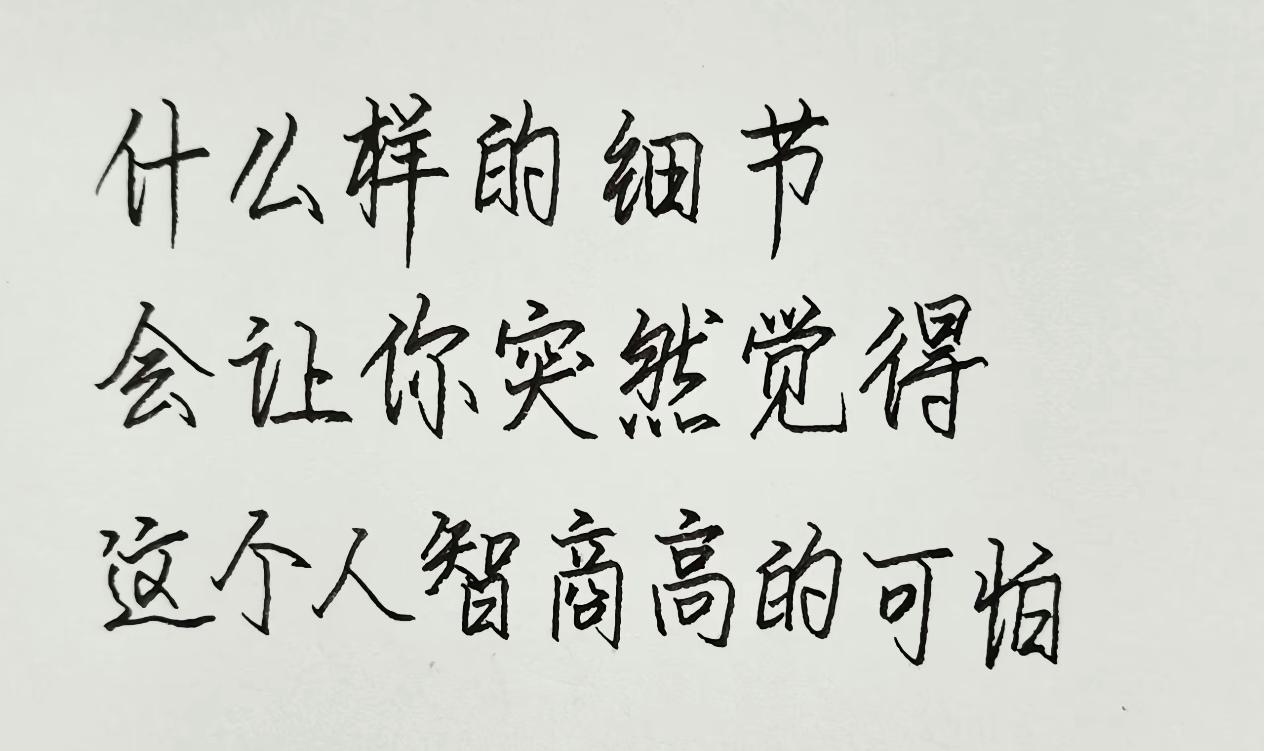 什么样的细节
会让你突然觉得
这个人智商高的可怕